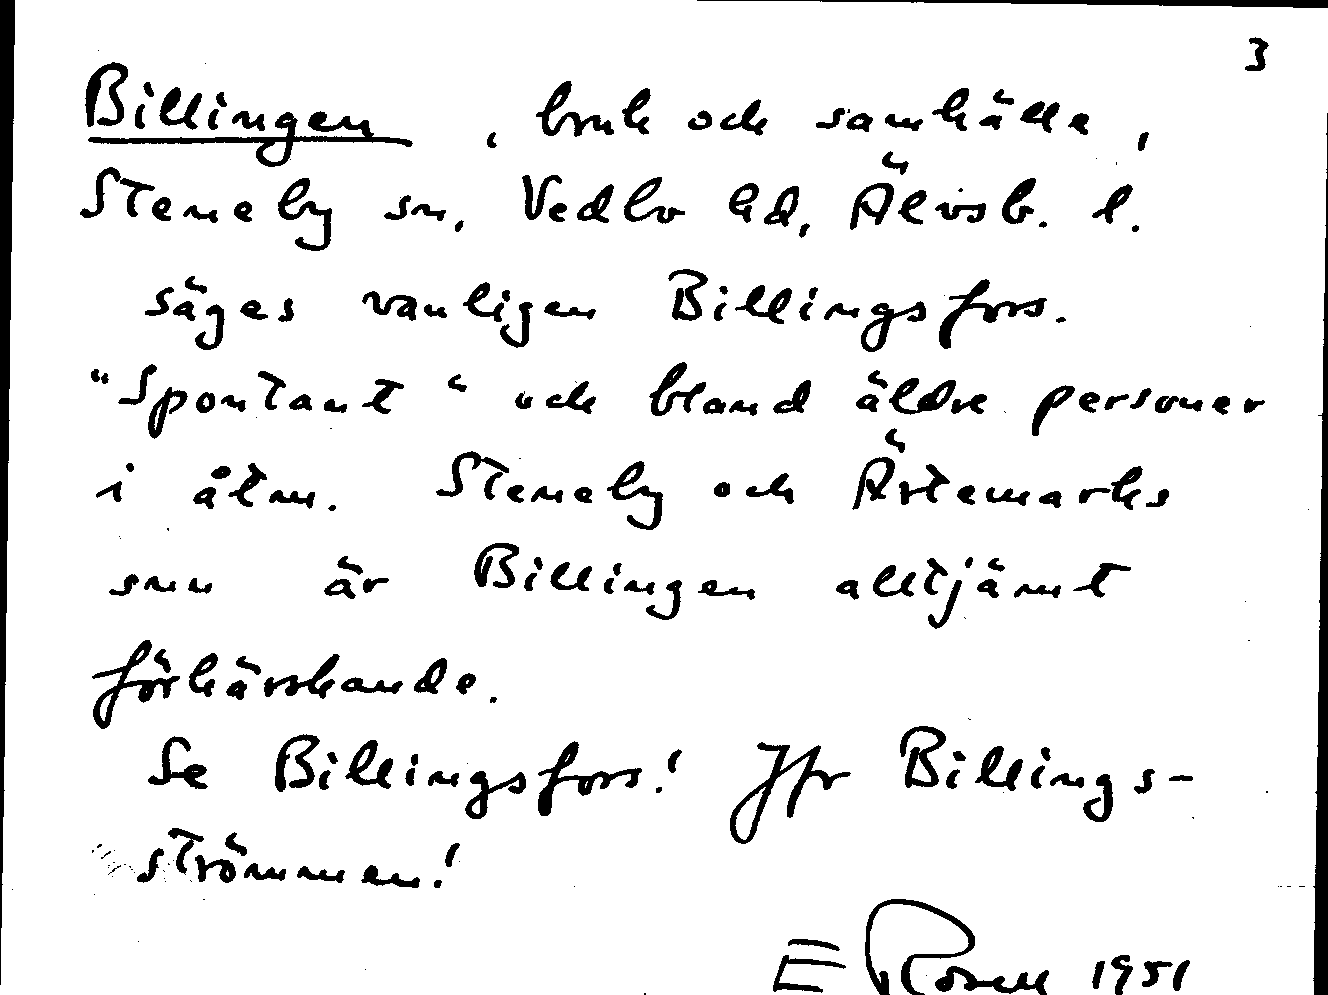 3
Billingen, bruk och samhälle,
Steneby sn, Vedbo hd, Älvsb. l.
säges vanligen Billingsfors.
"Spontant" och bland äldre personer
i åtm. Steneby och Ärtemarks
snn är Billingen alltjämt
förhärskande.
Se Billingsfors! Jfr Billings-
strömmen!
E Rosell 1951